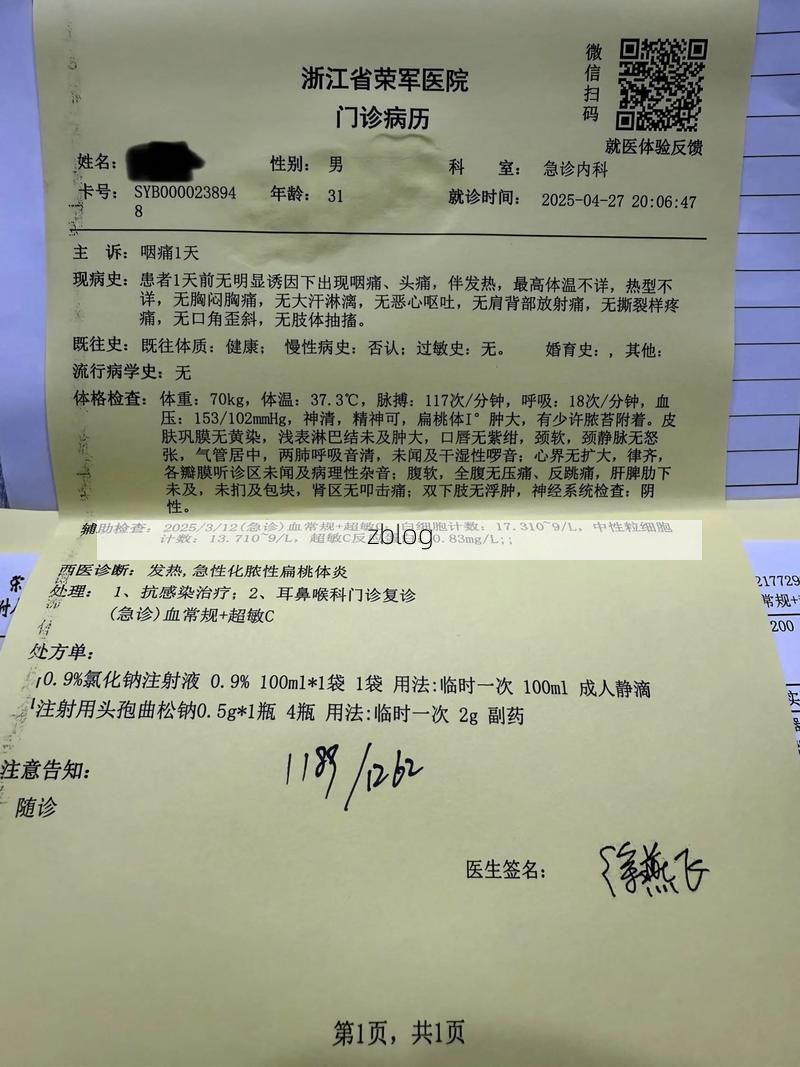 微信扫码
浙江省荣军医院
门诊病历
就医体验反馈
姓名: 性别: 男 科 室: 急诊内科
卡号: SYB000023894 年龄: 31 就诊时间: 2025-04-27 20:06:47
8
主 诉: 咽痛1天
现病史: 患者1天前无明显诱因下出现咽痛、头痛，伴发热，最高体温不详，热型不
详，无胸闷胸痛，无大汗淋漓，无恶心呕吐，无肩背部放射痛，无撕裂样疼
痛，无口角歪斜，无肢体抽搐。
既往史: 既往体质: 健康; 慢性病史: 否认; 过敏史: 无。 婚育史: , 其他:
流行病学史: 无
体格检查: 体重: 70kg, 体温: 37.3℃, 脉搏: 117次/分钟, 呼吸: 18次/分钟, 血
压: 153/102mmHg, 神清, 精神可, 扁桃体I°肿大, 有少许脓苔附着。皮
肤巩膜无黄染, 浅表淋巴结未及肿大, 口唇无紫绀, 颈软, 颈静脉无怒
张, 气管居中, 两肺呼吸音清, 未闻及干湿性啰音; 心界无扩大, 律齐,
各瓣膜听诊区未闻及病理性杂音; 腹软, 全腹无压痛、反跳痛, 肝脾肋下
未及, 未扪及包块, 肾区无叩击痛; 双下肢无浮肿, 神经系统检查: 阴
性。
辅助检查: 2025/3/12(急诊)血常规+超敏 白细胞计数: 17.310^9/L, 中性粒细胞
计数: 13.710^9/L, 超敏C反 0.83mg/L;;
zblog
西医诊断: 发热,急性化脓性扁桃体炎
处理: 1、抗感染治疗; 2、耳鼻喉科门诊复诊
(急诊)血常规+超敏C
处方单:
0.9%氯化钠注射液 0.9% 100ml*1袋 1袋 用法:临时一次 100ml 成人静滴
注射用头孢曲松钠0.5g*1瓶 4瓶 用法:临时一次 2g 副药
注意告知:
随诊
1189/1262
医生签名: 徐燕飞
第1页, 共1页
217729
常规+
200